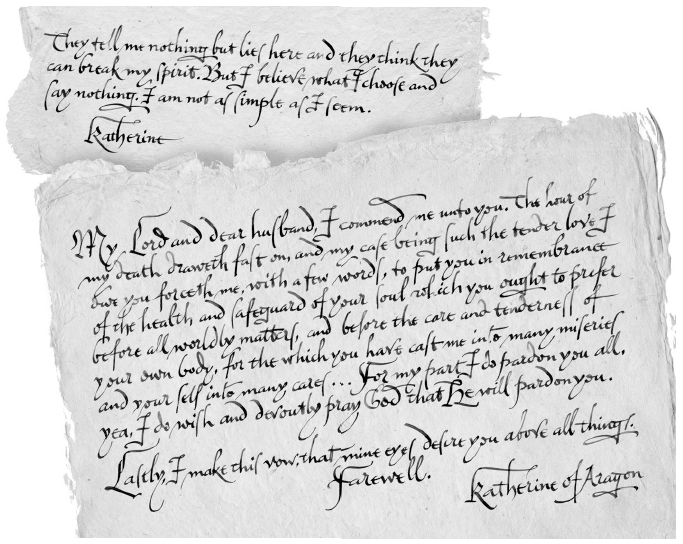 They tell me nothing but lies here and they think they
can break my spirit. But I believe what I choose and
say nothing. I am not as simple as I seem.
Katherine
My Lord and dear husband, I commend me unto you. The hour of
my death draweth fast on, and my case being such, the tender love I
owe you forceth me, with a few words, to put you in remembrance
of the health and safeguard of your soul which you ought to prefer
before all worldly matters, and before the care and tenderness of
your own body, for the which you have cast me into many miseries
and your self into many cares ... For my part I do pardon you all,
yea, I do wish and devoutly pray God that He will pardon you.
Lastly, I make this vow, that mine eyes desire you above all things.
Farewell.
Katherine of Aragon